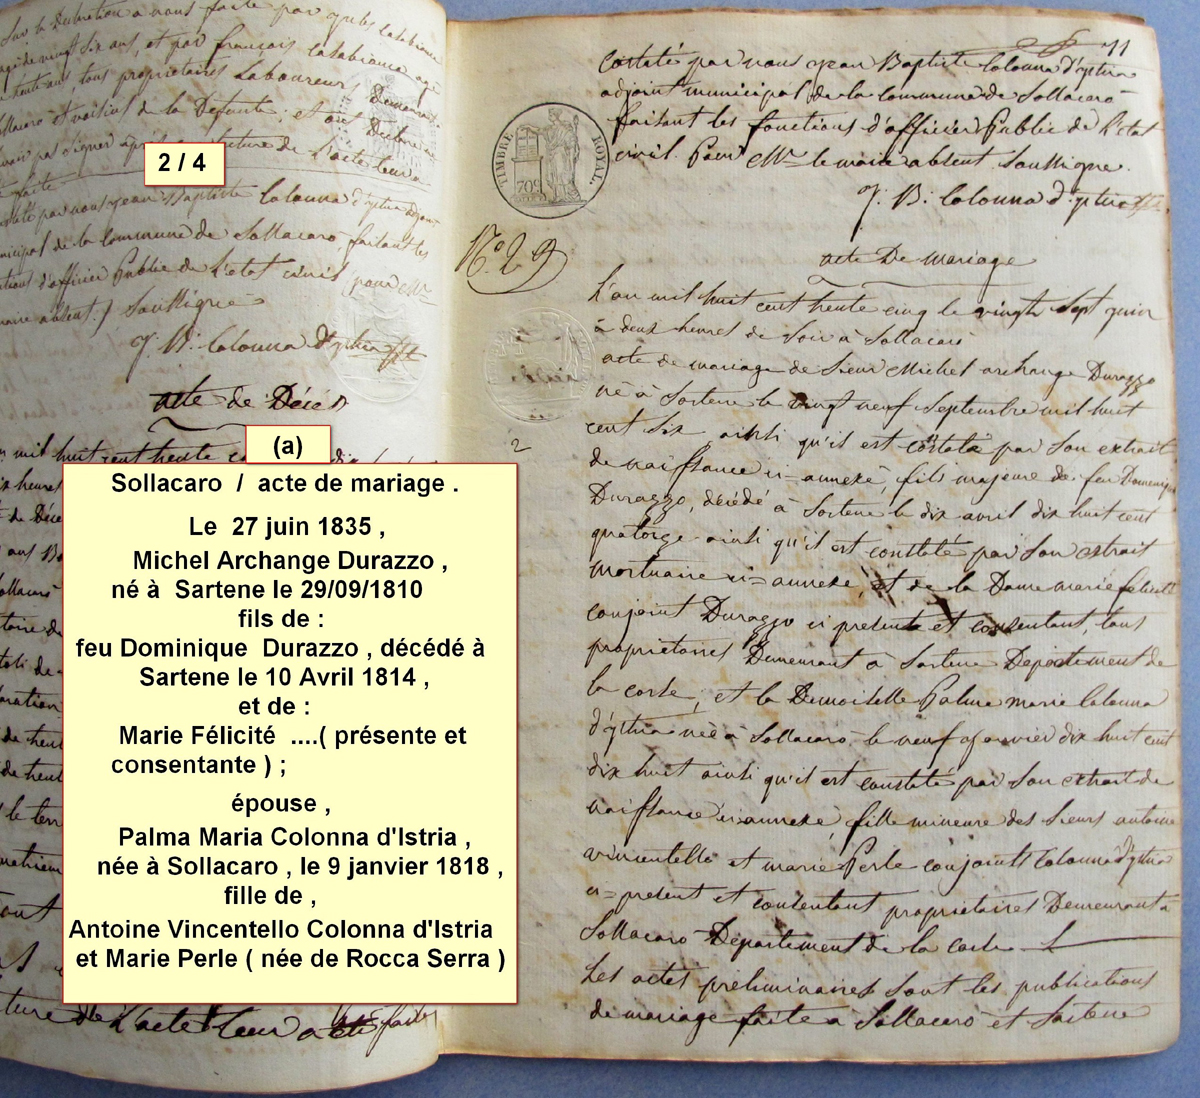 Sur la Declaration a nous faite par
age de vingt six ans, et par françois Casabianca age
de trente ans, tous proprietaires Laboureurs Demeurant
Sollacaro et voisins de la Defunte, et ont Declaré
2 / 4
faite
Jean Baptiste Colonna d'istria adjoint
municipal de la Commune de Sollacaro, faisant les
fonctions d'officier Public de l'etat civil pour Mr
maire absent. / Soussigné
J. B. Colonna d'istria
acte de Décés
mil huit cent trente
(a)
Sollacaro / acte de mariage .
Le 27 juin 1835 ,
Michel Archange Durazzo ,
né à Sartene le 29/09/1810
fils de :
feu Dominique Durazzo , décédé à
Sartene le 10 Avril 1814 ,
et de :
Marie Félicité ....( présente et
consentante ) ;
épouse ,
Palma Maria Colonna d'Istria ,
née à Sollacaro , le 9 janvier 1818 ,
fille de ,
Antoine Vincentello Colonna d'Istria
et Marie Perle ( née de Rocca Serra )
de L'acte Leur a été faite
11
Costaté par nous Jean Baptiste Colonna d'istria
adjoint municipal de la Commune de Sollacaro
faisant les fonctions d'officier Public de l'etat
civil. Pour Mr le maire absent Soussigné.
J. B. Colonna d'istria
TIMBRE ROYAL.
709
No. 29
acte De mariage
L'an mil huit cent trente cinq le vingt Sept juin
à deux heures de Soir à Sollacaró
acte de mariage de Sieur Michel archange Durazzo
né à Sartene le vingt neuf Septembre mil huit
cent dix ainsi qu'il est costaté par Son extrait
2
de naissance ci=annexé, fils majeure de feu Dominique
Durazzo, décédé à Sartene le dix avril dix huit cent
quatorze ainsi qu'il est constaté par Son extrait
mortuaire ci=annexé, et de la Dame marie felicité
conjoint Durazzo ci presente et consentant, tous
proprietaires Demeurant à Sartene Departement de
la corse, et la Demoiselle Palma marie Colonna
d'istria née à Sollacaró le neuf Janvier dix huit cent
dix huit ainsi qu'il est constaté par Son extrait de
naissance ci=annexé, fille mineure des Sieurs antoine
vincentello et marie Perle conjoints Colonna d'istria
ci=present et consentant proprietaires Demeurant à
Sollacaró Département de la corse
Les actes préliminaires sont les publications
de mariage faite à Sollacaró et Sartene